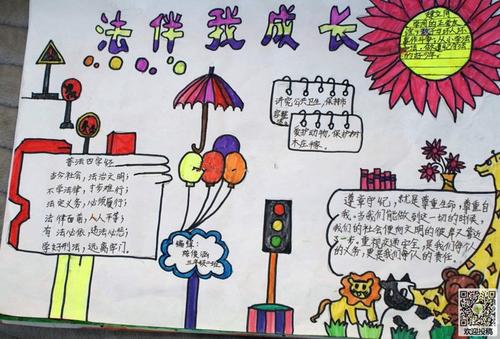 法伴我成长
讲究公共卫生,保持市
容整洁
爱护动物,保护树
木庄稼。
普法四字经
当今社会,法治文明;
不学法律,寸步难行;
法定义务,必须履行;
法律面前,人人平等;
有法必依,违法必惩;
学好刑法,远离牢门。
编辑:
三年级一班
遵章守纪,就是尊重生命,尊重自
我。当我们能做到这一切的时候,
我们的社会便向文明的彼岸又靠近
了一步,重视交通安全,是我们每个人
的义务,更是我们每个人的责任。
欢迎投稿